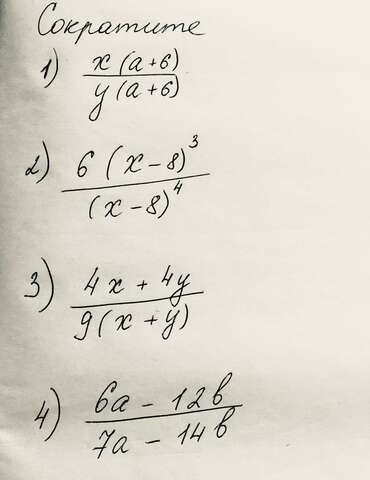 Сократите
1) x(a+6)
y(a+6)
2) 6(x-8)³
(x-8)⁴
3) 4x+4y
9(x+y)
4) 6a-12b
7a-14b